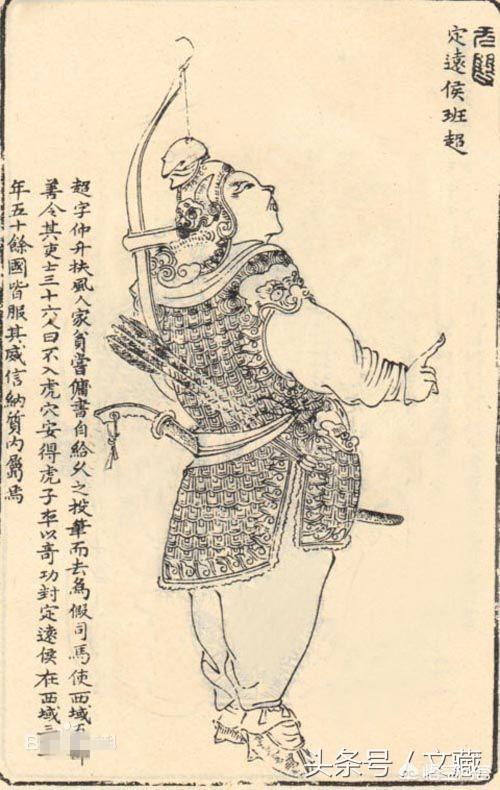 定遠侯班超
超字仲升扶風人家貧嘗傭書自給久之投筆而去為假司馬使西域
善令其吏士三十六人曰不入虎穴安得虎子卒以奇功封定遠侯在西域三
年五十餘國皆服其威信納質內屬焉
头条号 / 文藏